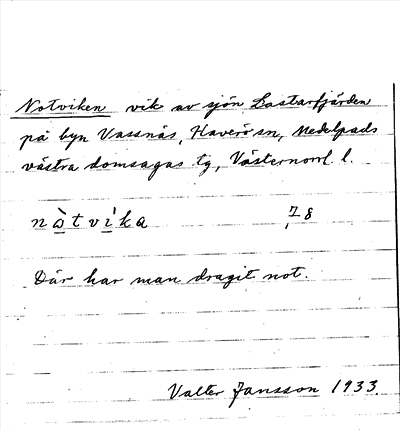 Notviken vik av sjön Lastarfjärden
på byn Vassnäs, Haverö sn, Medelpads
västra domsagas tg, Västernorrl. l.
nòtvìka 78
Där har man dragit not.
Valter Jansson 1933.